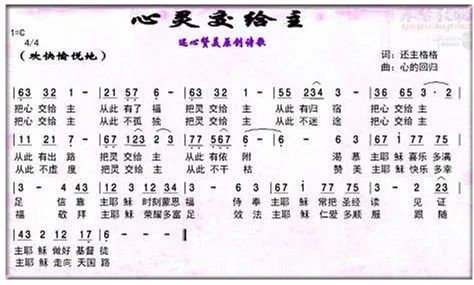 心灵交给主
还心贤美原创诗歌
1=C
4/4
(欢快愉悦地)
词:还主格格
曲:心的回归
63 32 1 - | 21 57 6 - | 63 32 1 - | 55 234 3 - | 36 65 3 · 2 |
把心 交给 主 从此 有了 福 把灵 交给 主 从此 有归 宿 把心 交给 主
把心 交给 主 从此 不孤 独 把灵 交给 主 从此 不迷 途 把心 交给 主
11 21 7 - | 67 123 2 - | 77 567 6 - | 6 - 1 - | 67 1 77 75 |
从此 有出 路 把灵 交给 主 从此 有依 附 渴 慕 主耶 稣 喜乐 多满
从此 不虚 度 把灵 交给 主 从此 不干 枯 赞 美 主耶 稣 快乐 多幸
3 - 4 - | 43 2 12 34 | 3 - 6 - | 67 1 77 75 | 3 - 2 23 |
足 信 靠 主耶 稣 时刻 蒙恩 福 侍 奉 主耶 稣 常把 圣经 读 见 证
福 敬 拜 主耶 稣 荣耀 多富 足 效 法 主耶 稣 仁爱 多顺 服 跟 随
43 2 12 17 | 6 - 6 - ‖
主耶 稣 做好 基督 徒
主耶 稣 走向 天国 路